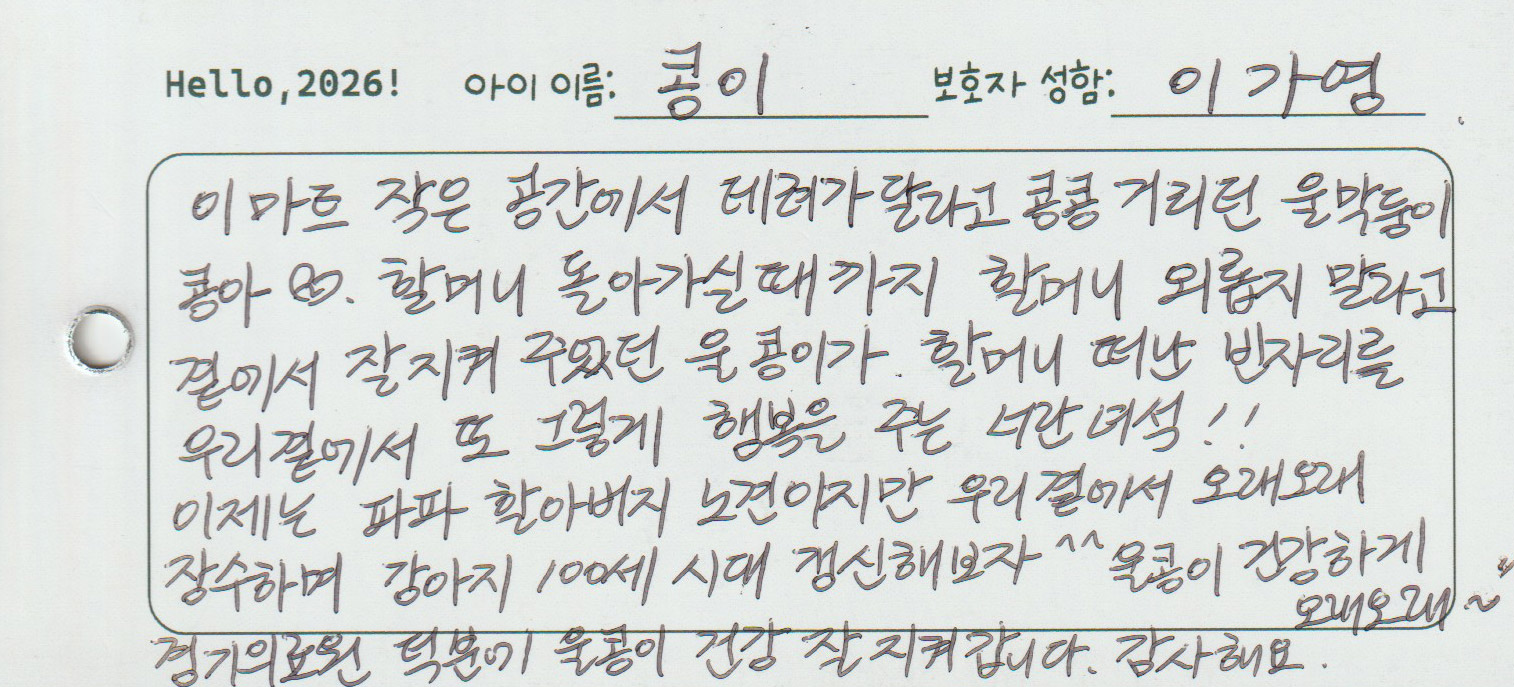 Hello,2026! 아이 이름: 콩이 보호자 성함: 이가영
이마트 작은 공간에서 데려가달라고 콩콩 거리던 울막둥이
콩아 할머니 돌아가실때까지 할머니 외롭지 말라고
곁에서 잘지켜 주웠던 울콩이가 할머니 떠난 빈자리를
우리곁에서 또 그렇게 행복을 주는 너란녀석!!
이제는 파파 할아버지 노견이지만 우리곁에서 오래오래
장수하며 강아지 100세 시대 갱신해보자^^ 울콩이 건강하게
오래오래~
경기의료원 덕분에 울콩이 건강 잘 지켜갑니다. 감사해요.